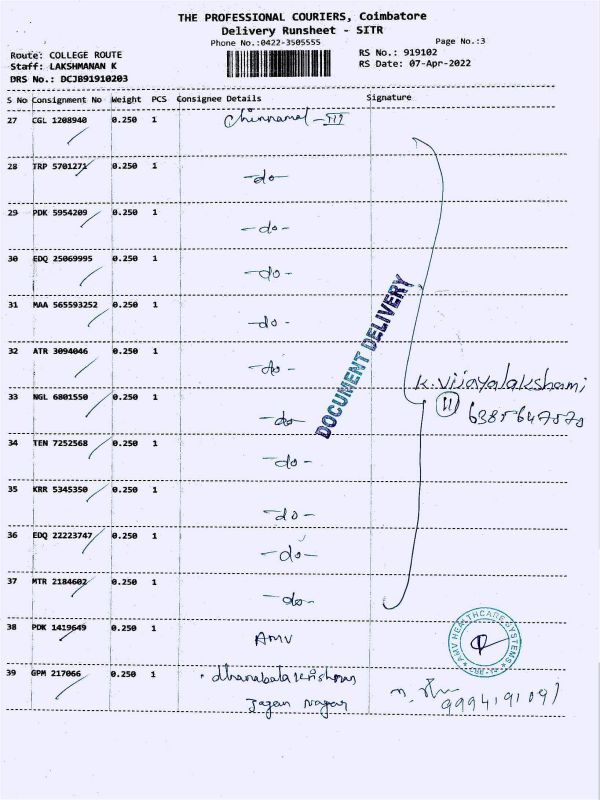 THE PROFESSIONAL COURIERS, Coimbatore
Delivery Runsheet - SITR
Phone No.:0422-3505555
Page No.:3
Route: COLLEGE ROUTE
RS No.: 919102
Staff: LAKSHMANAN K
RS Date: 07-Apr-2022
DRS No.: DCJB91910203
S No Consignment No Weight PCS Consignee Details Signature
27 CGL 1208940 0.250 1
28 TRP 5701271 0.250 1 -do-
29 PDK 5954209 0.250 1 -do-
30 EDQ 25069995 0.250 1 -do-
31 MAA 565593252 0.250 1 -do-
32 ATR 3094046 0.250 1 -do-
DOCUMENT DELIVERY
K. Vijayalakshami
33 NGL 6801550 0.250 1 -do- 11
34 TEN 7252568 0.250 1 -do-
35 KRR 5345350 0.250 1 -do-
36 EDQ 22223747 0.250 1 -do-
37 MTR 2184602 0.250 1 -do-
38 PDK 1419649 0.250 1 AMV
AMV HEALTHCARE SYSTEMS
39 GPM 217066 0.250 1
Jagan Nagar